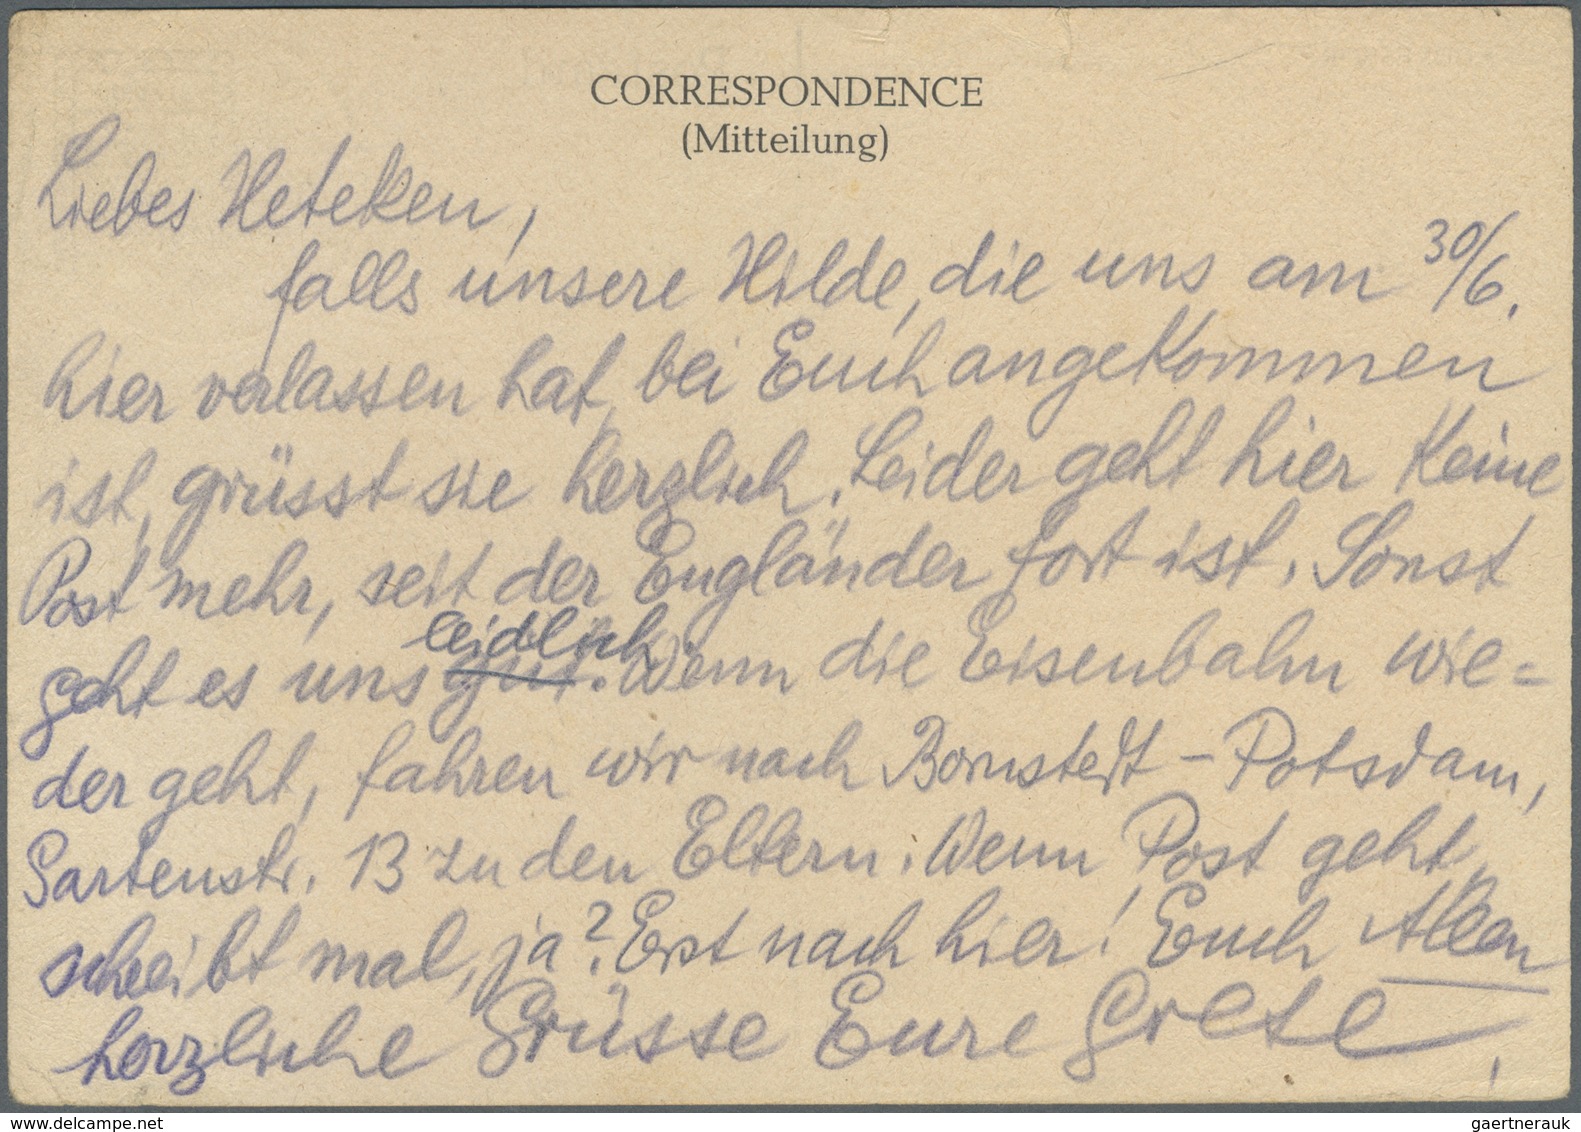 CORRESPONDENCE
(Mitteilung)
Liebes Heteken,
falls unsere Hilde, die uns am 30/6.
hier verlassen hat, bei Euch angekommen
ist, grüsst sie herzlich. Leider geht hier keine
Post mehr, seit der Engländer fort ist. Sonst
leidlich
geht es uns gut. Wenn die Eisenbahn wie=
der geht, fahren wir nach Bornstedt - Potsdam,
Gartenstr. 13 zu den Eltern. Wenn Post geht,
schreibt mal, ja? Erst nach hier! Euch Allen
herzliche Grüsse Eure Grete,
delcampe.net
gaertnerauk